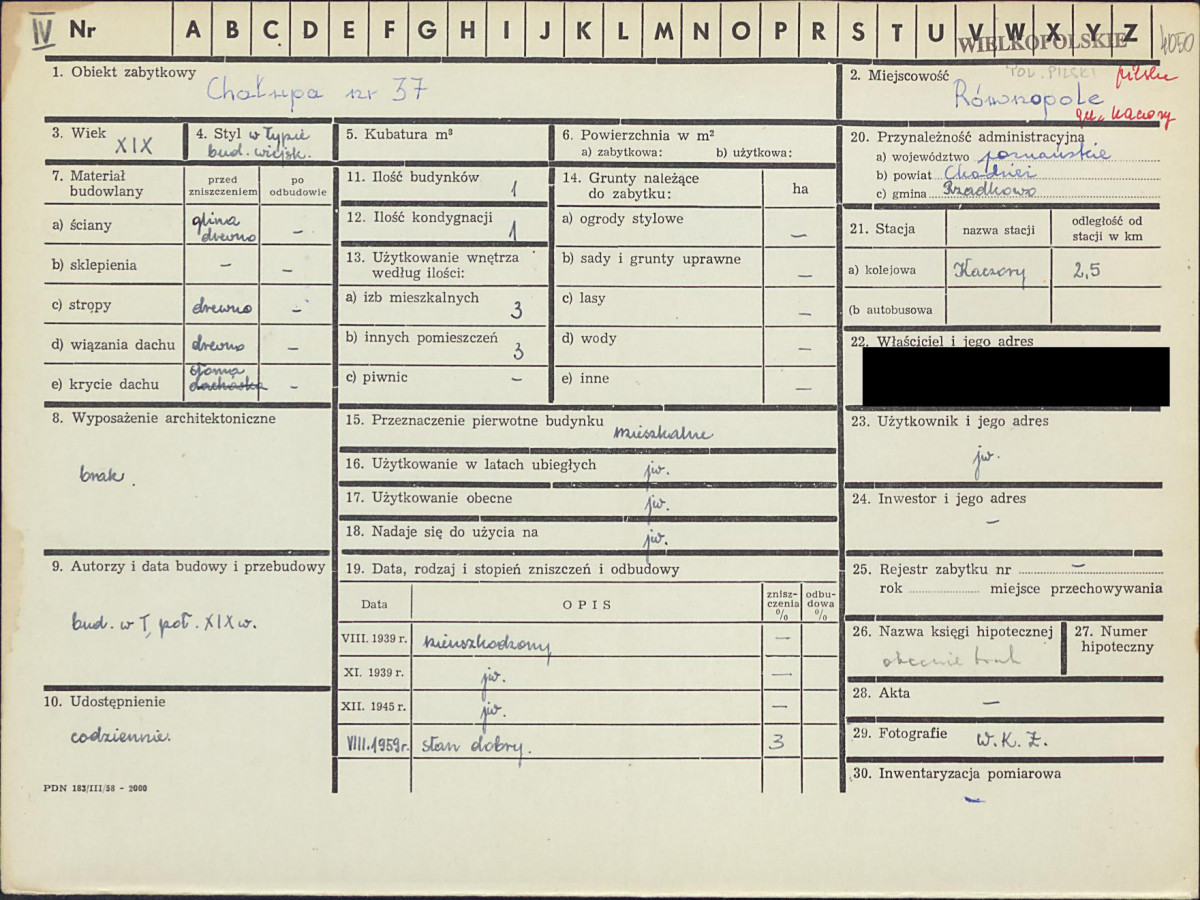 IV Nr A B C D E F G H I J K L M N O P R S T U V W X Y Z
WIELKOPOLSKIE
4050
1. Obiekt zabytkowy
Chałupa nr 37
2. Miejscowość
POW. PILSKI pilskie
Równopole
gm. Kaczory
3. Wiek
XIX
4. Styl w typie
bud. wiejsk.
5. Kubatura m³
6. Powierzchnia w m²
a) zabytkowa: b) użytkowa:
7. Materiał budowlany
przed zniszczeniem
po odbudowie
a) ściany glina drewno –
b) sklepienia – –
c) stropy drewno –
d) wiązania dachu drewno –
e) krycie dachu słoma dachówka –
8. Wyposażenie architektoniczne
brak.
9. Autorzy i data budowy i przebudowy
bud. w I poł. XIX w.
10. Udostępnienie
codziennie.
PDN 183/III/58 - 2000
11. Ilość budynków 1
12. Ilość kondygnacji 1
13. Użytkowanie wnętrza według ilości:
a) izb mieszkalnych 3
b) innych pomieszczeń 3
c) piwnic –
14. Grunty należące do zabytku: ha
a) ogrody stylowe –
b) sady i grunty uprawne –
c) lasy –
d) wody –
e) inne –
15. Przeznaczenie pierwotne budynku
mieszkalne
16. Użytkowanie w latach ubiegłych jw.
17. Użytkowanie obecne jw.
18. Nadaje się do użycia na jw.
19. Data, rodzaj i stopień zniszczeń i odbudowy
Data OPIS zniszczenia % odbudowa %
VIII. 1939 r. nieuszkodzony –
XI. 1939 r. jw. –
XII. 1945 r. jw. –
VIII.1959r. stan dobry. 3
20. Przynależność administracyjna
a) województwo poznańskie
b) powiat Chodzież
c) gmina Rzadkowo
21. Stacja nazwa stacji odległość od stacji w km
a) kolejowa Kaczory 2,5
(b autobusowa
22. Właściciel i jego adres
23. Użytkownik i jego adres
jw.
24. Inwestor i jego adres
–
25. Rejestr zabytku nr –
rok miejsce przechowywania
26. Nazwa księgi hipotecznej
obecnie brak
27. Numer hipoteczny
28. Akta
–
29. Fotografie W. K. Z.
30. Inwentaryzacja pomiarowa
–